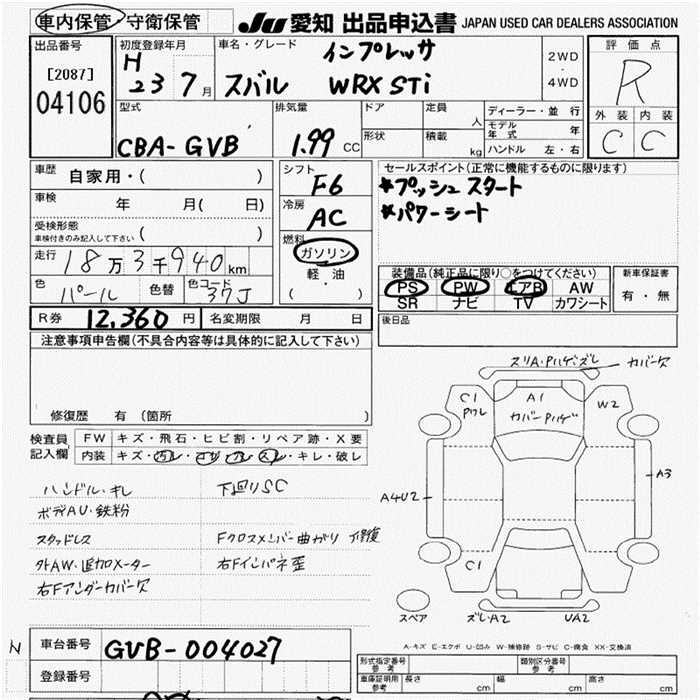 車内保管・守衛保管
Ju 愛知 出品申込書 JAPAN USED CAR DEALERS ASSOCIATION
出品番号
[2087]
04106
初度登録年月
H
23 7 月
車名・グレード
インプレッサ
スバル WRX STi
2WD
・
4WD
評価点
R
外装 内装
C C
型式
CBA-GVB
排気量
1.99 CC
ドア
形状
定員
人
積載
kg
ディーラー・並行
モデル年式 年
ハンドル 左・右
車歴
自家用・( )
車検
年 月( 日)
受検形態
車検付きのみ記入して下さい ( )
走行
18万3千940km
色
パール
色替
色コード
37J
シフト
F6
冷房
AC
燃料
ガソリン
軽・油
( ・ )
セールスポイント(正常に機能するものに限ります)
★プッシュスタート
★パワーシート
装備品(純正品に限り○をつけてください)
PS PW エアB AW
SR ナビ TV カワシート
新車保証書
有・無
R券 12,360 円
名変期限 月 日
後日品
注意事項申告欄(不具合内容等は具体的に記入して下さい)
修復歴 有(箇所 )
検査員
記入欄
FW キズ・飛石・ヒビ割・リペア跡・X要
内装 キズ・汚レ・コゲ・アレ・スレ・キレ・破レ
ハンドル・キレ
ボディAU・鉄粉
スタッドレス
外AW・追加メーター
右Fアンダーカバー欠
下廻りSC
Fクロスメンバー曲がり 修復
右Fインパネ歪
スリA・Pハゲ・ズレ カバー欠
C1
Pワレ
A1
カバーPハゲ
W2
A4U2
A3
C1
スペア
ズレA2
UA2
A-キズ E-エクボ U-凹み W-補修跡 S-サビ C-腐食 XX-交換済
N
車台番号
GVB-004027
登録番号
形式指定番号
参考
類別区分番号
参考
車庫証明用
参考
長さ cm
幅 cm
高さ cm